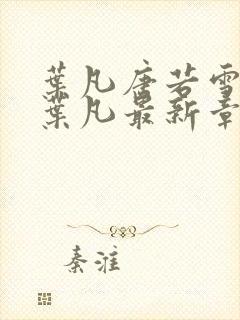 葉凡唐若雪
葉凡最新章
秦淮